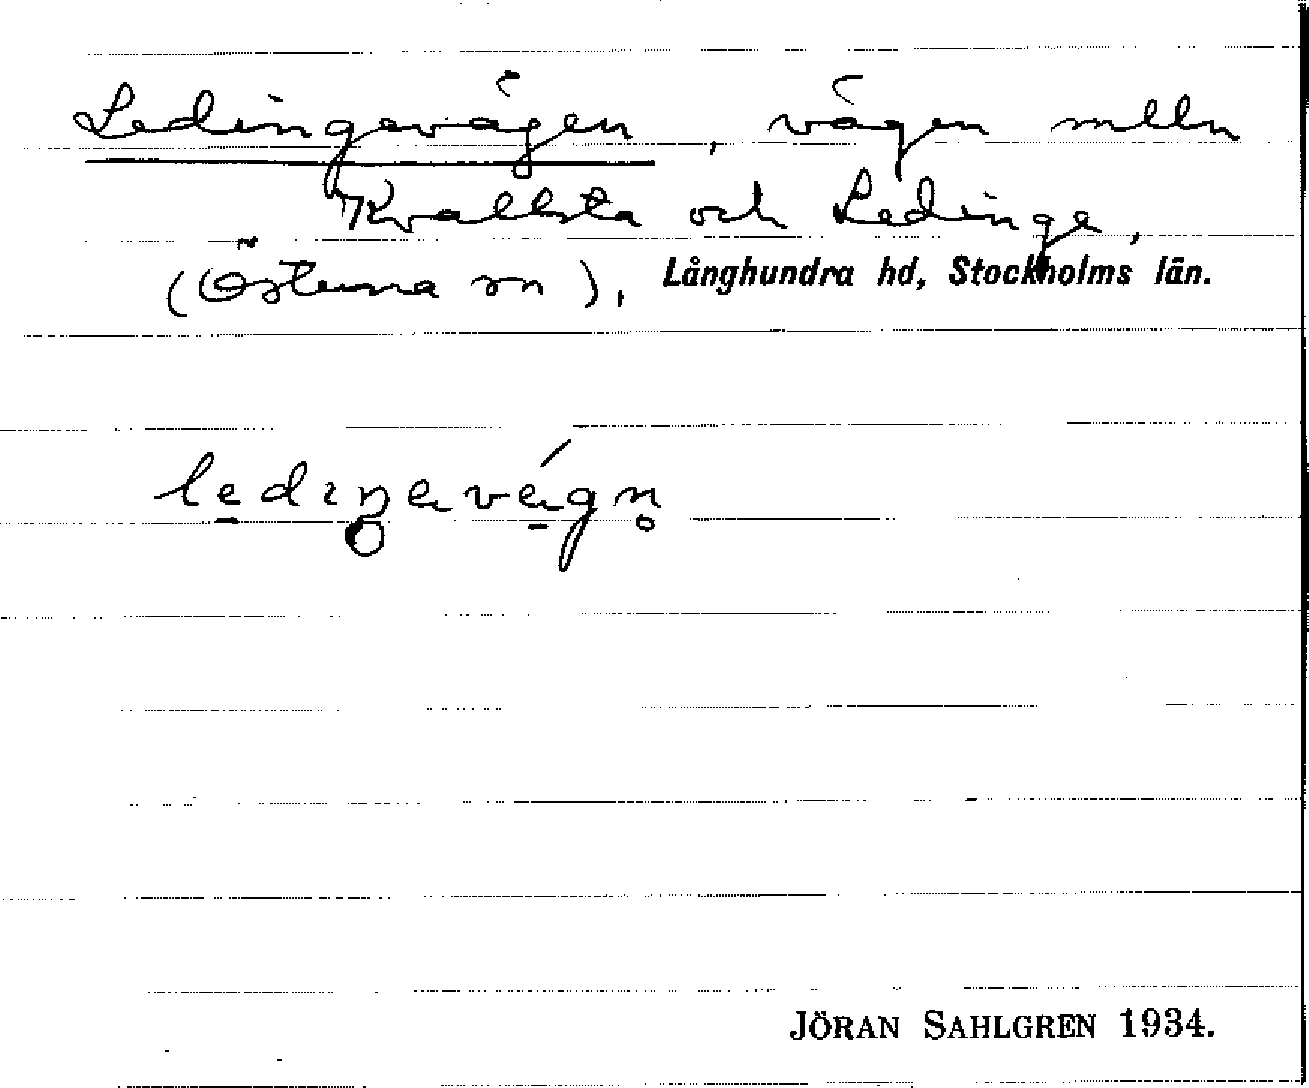 Ledingevägen, vägen mlln
Kvallsta och Ledinge,
(Östuna sn), Långhundra hd, Stockholms län.
JÖRAN SAHLGREN 1934.